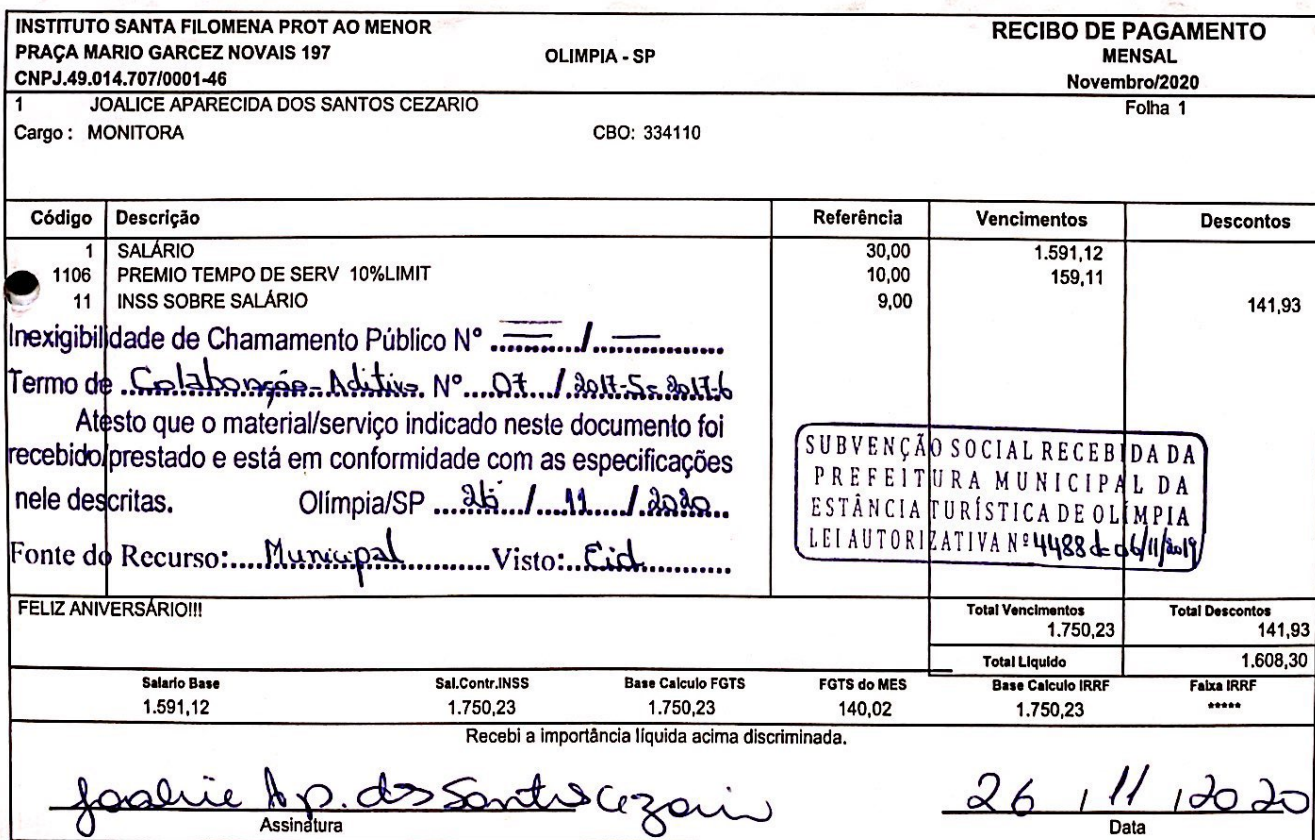 INSTITUTO SANTA FILOMENA PROT AO MENOR
RECIBO DE PAGAMENTO
PRAÇA MARIO GARCEZ NOVAIS 197 OLIMPIA - SP MENSAL
CNPJ.49.014.707/0001-46 Novembro/2020
1 JOALICE APARECIDA DOS SANTOS CEZARIO Folha 1
Cargo : MONITORA CBO: 334110
Código Descrição Referência Vencimentos Descontos
1 SALÁRIO 30,00 1.591,12
1106 PREMIO TEMPO DE SERV 10%LIMIT 10,00 159,11
11 INSS SOBRE SALÁRIO 9,00 141,93
Inexigibilidade de Chamamento Público Nº ........../...............
Termo de ..Colaboração-Aditivo. Nº ....07.../.2017-5 2017-6
Atesto que o material/serviço indicado neste documento foi
recebido/prestado e está em conformidade com as especificações
nele descritas. Olímpia/SP ....26.../...11..../.2020..
Fonte do Recurso:....Municipal...........Visto:..Cid............
SUBVENÇÃO SOCIAL RECEBIDA DA
PREFEITURA MUNICIPAL DA
ESTÂNCIA TURÍSTICA DE OLÍMPIA
LEI AUTORIZATIVA Nº 4488 de 06/11/2019
FELIZ ANIVERSÁRIO!!!
Total Vencimentos Total Descontos
1.750,23 141,93
Total Liquido 1.608,30
Salario Base Sal.Contr.INSS Base Calculo FGTS FGTS do MES Base Calculo IRRF Faixa IRRF
1.591,12 1.750,23 1.750,23 140,02 1.750,23 *****
Recebi a importância líquida acima discriminada.
Joalice Ap. dos Santos Cezario 26 / 11 / 2020
Assinatura Data